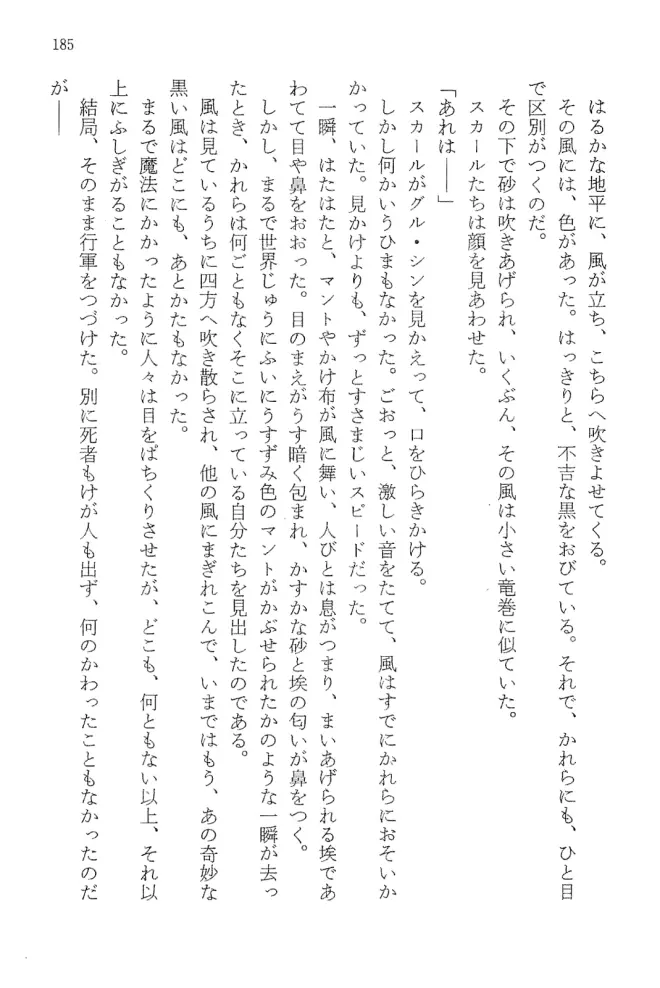 185
はるかな地平に、風が立ち、こちらへ吹きよせてくる。
その風には、色があった。はっきりと、不吉な黒をおびている。それで、かれらにも、ひと目
で区別がつくのだ。
その下で砂は吹きあげられ、いくぶん、その風は小さい竜巻に似ていた。
スカールたちは顔を見あわせた。
「あれは――」
スカールがグル・シンを見かえって、口をひらきかける。
しかし何かいうひまもなかった。ごおっと、激しい音をたてて、風はすでにかれらにおそいか
かっていた。見かけよりも、ずっとすさまじいスピードだった。
一瞬、はたはたと、マントやかけ布が風に舞い、人びとは息がつまり、まいあげられる埃であ
わてて目や鼻をおおった。目のまえがうす暗く包まれ、かすかな砂と埃の匂いが鼻をつく。
しかし、まるで世界じゅうにふいにうすずみ色のマントがかぶせられたかのような一瞬が去っ
たとき、かれらは何ごともなくそこに立っている自分たちを見出したのである。
風は見ているうちに四方へ吹き散らされ、他の風にまぎれこんで、いまではもう、あの奇妙な
黒い風はどこにも、あとかたもなかった。
まるで魔法にかかったように人々は目をぱちくりさせたが、どこも、何ともない以上、それ以
上にふしぎがることもなかった。
結局、そのまま行軍をつづけた。別に死者もけが人も出ず、何のかわったこともなかったのだ
が――